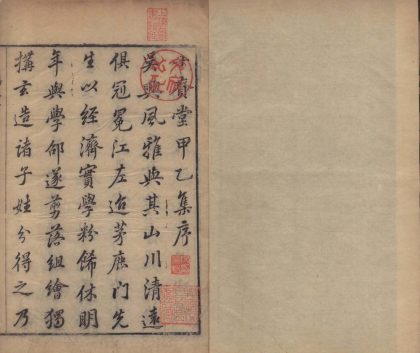 賁堂甲乙集序
吳興風雅與其山川清遠
俱冠冕江左迨茅鹿門先
生以經濟實學粉飾休明
年與學邵遂剪落組繪獨
搆玄造諸子姓分得之乃